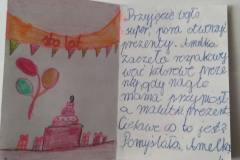 sto lat
Przyjęcie było
super, pora otwierać
prezenty. Amelka
zaczęła rozpakowy
wać kolorowe preze
nty, gdy nagle
mama przyniosł
a malutki prezent.
Ciekawe co to jest
Pomyślała Amelka